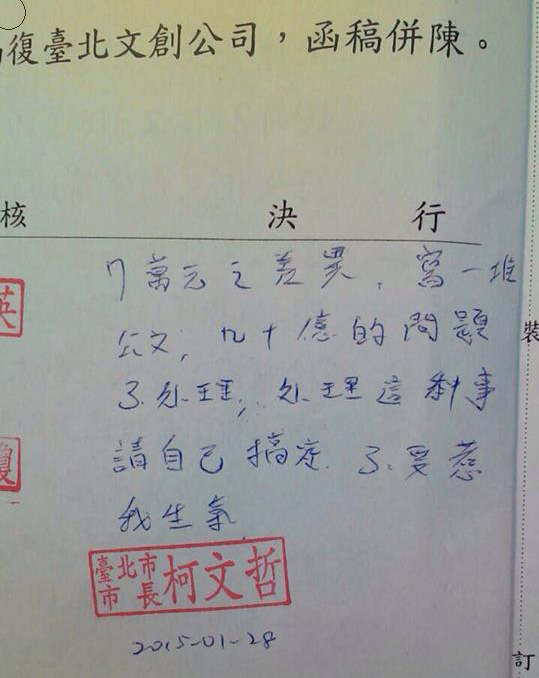 復臺北文創公司，函稿併陳。
核 決 行
7萬元之差異，寫一堆
公文，九十億的問題
不處理，處理這種事
請自己搞定，不要惹
我生氣
英
瓊
臺北市市長柯文哲
2015-01-28
裝
訂